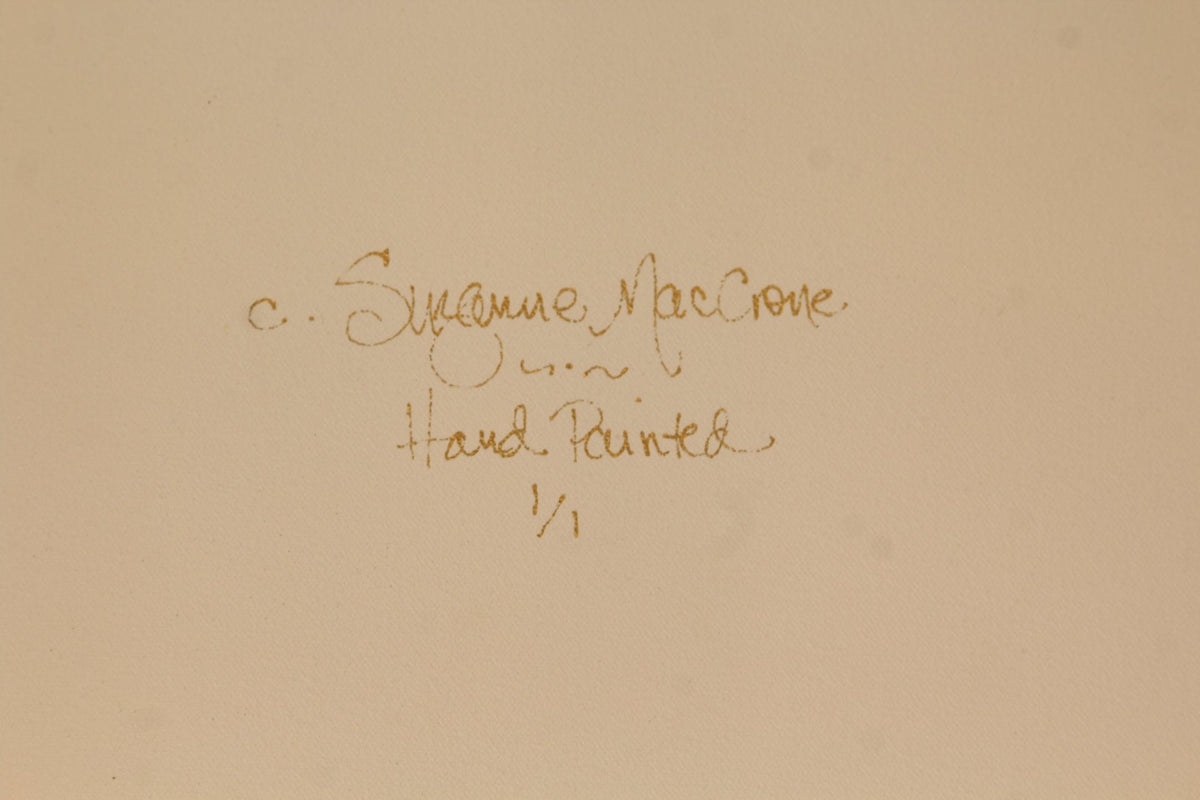 c. Suzanne MacCrone
Hand Painted
1/1